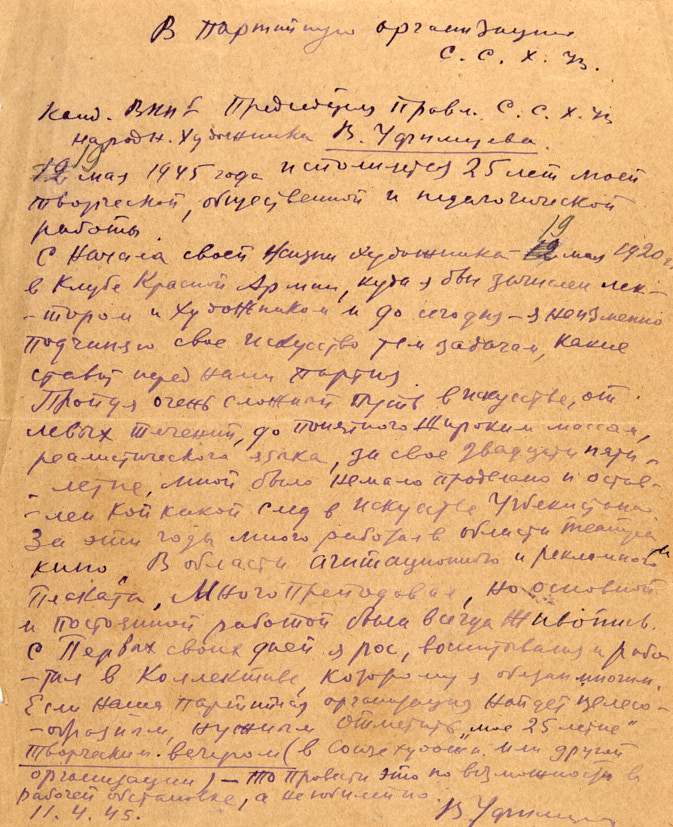 В партийную организацию
С. С. Х. Уз.
Канд. ВКПб Председателя Правл. С. С. Х. Уз
народн. художника В. Уфимцева.
19 мая 1945 года исполняется 25 лет моей
творческой, общественной и педагогической
работы.
С начала своей жизни художника – 19 мая 1920 г.
в Клубе Красной Армии, куда я был зачислен лек-
-тором и художником и до сегодня – я неизменно
подчиняю свое искусство тем задачам, какие
ставит перед нами партия.
Пройдя очень сложный путь в искусстве, от
левых течений, до понятного широким массам,
реалистического языка, за свое двадцати пяти-
-летие, мной было немало проделано и остав-
-лен кой какой след в искусстве Узбекистана.
За эти годы много работал в области театра и
кино В области агитационного и рекламного
плаката, Много преподавал, но основной
и постоянной работой была всегда живопись.
С Первых своих дней я рос, воспитывался и рабо-
-тал в Коллективе, которому я обязан многим.
Если наша партийная организация найдет целесо-
-образным, нужным отметить „мое 25 летие"
творческим вечером (в союзе художн. или другой
организации) – то провести это по возможности в
рабочей обстановке, а не юбилейно
11. 4. 45. В. Уфимцев